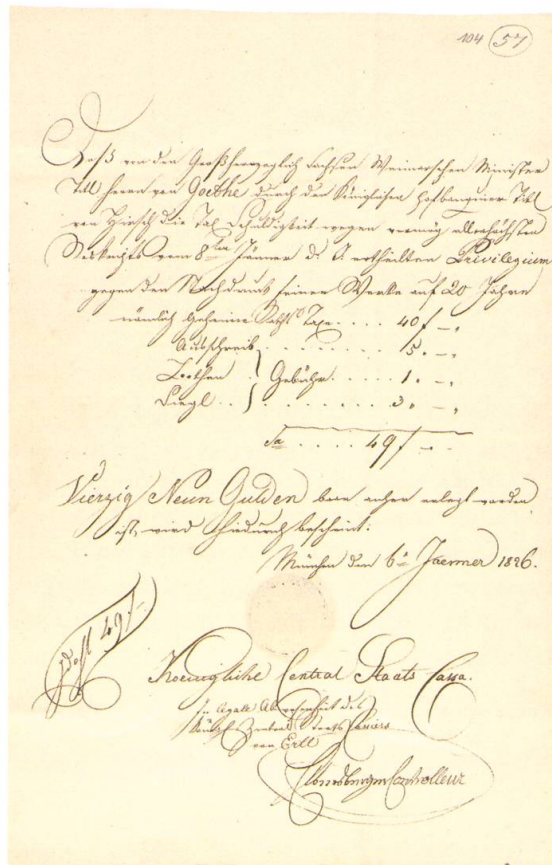 104 57
Daß von den Großherzoglich Sachsen Weimarschen Minister
Titl Herrn von Goethe durch den Königlichen Hofbanquier Titl
von Hirsch die Tax Schuldigkeit wegen allerhöchsten
Rescripts vom 8ten Jänner d. J. ertheilten Privilegium
gegen den Nachdruck seiner Werke auf 20 Jahre
nämlich Geheime Raths Taxe .... 40 f -,
Ausschreib ........ 5. -,
Bothen .. Gebühr ..... 1. -,
Siegl .. ....... 3. -,
Sa ..... 49 f -
Vierzig Neun Gulden baar anher erlegt worden
ist, wird hiedurch bescheint.
München den 6n Jaenner 1826.
49 f -
Koenigliche Central Staats Cassa.
In Abwesenheit des
Königl. Zentral Staats Cassiers
von
Controlleur